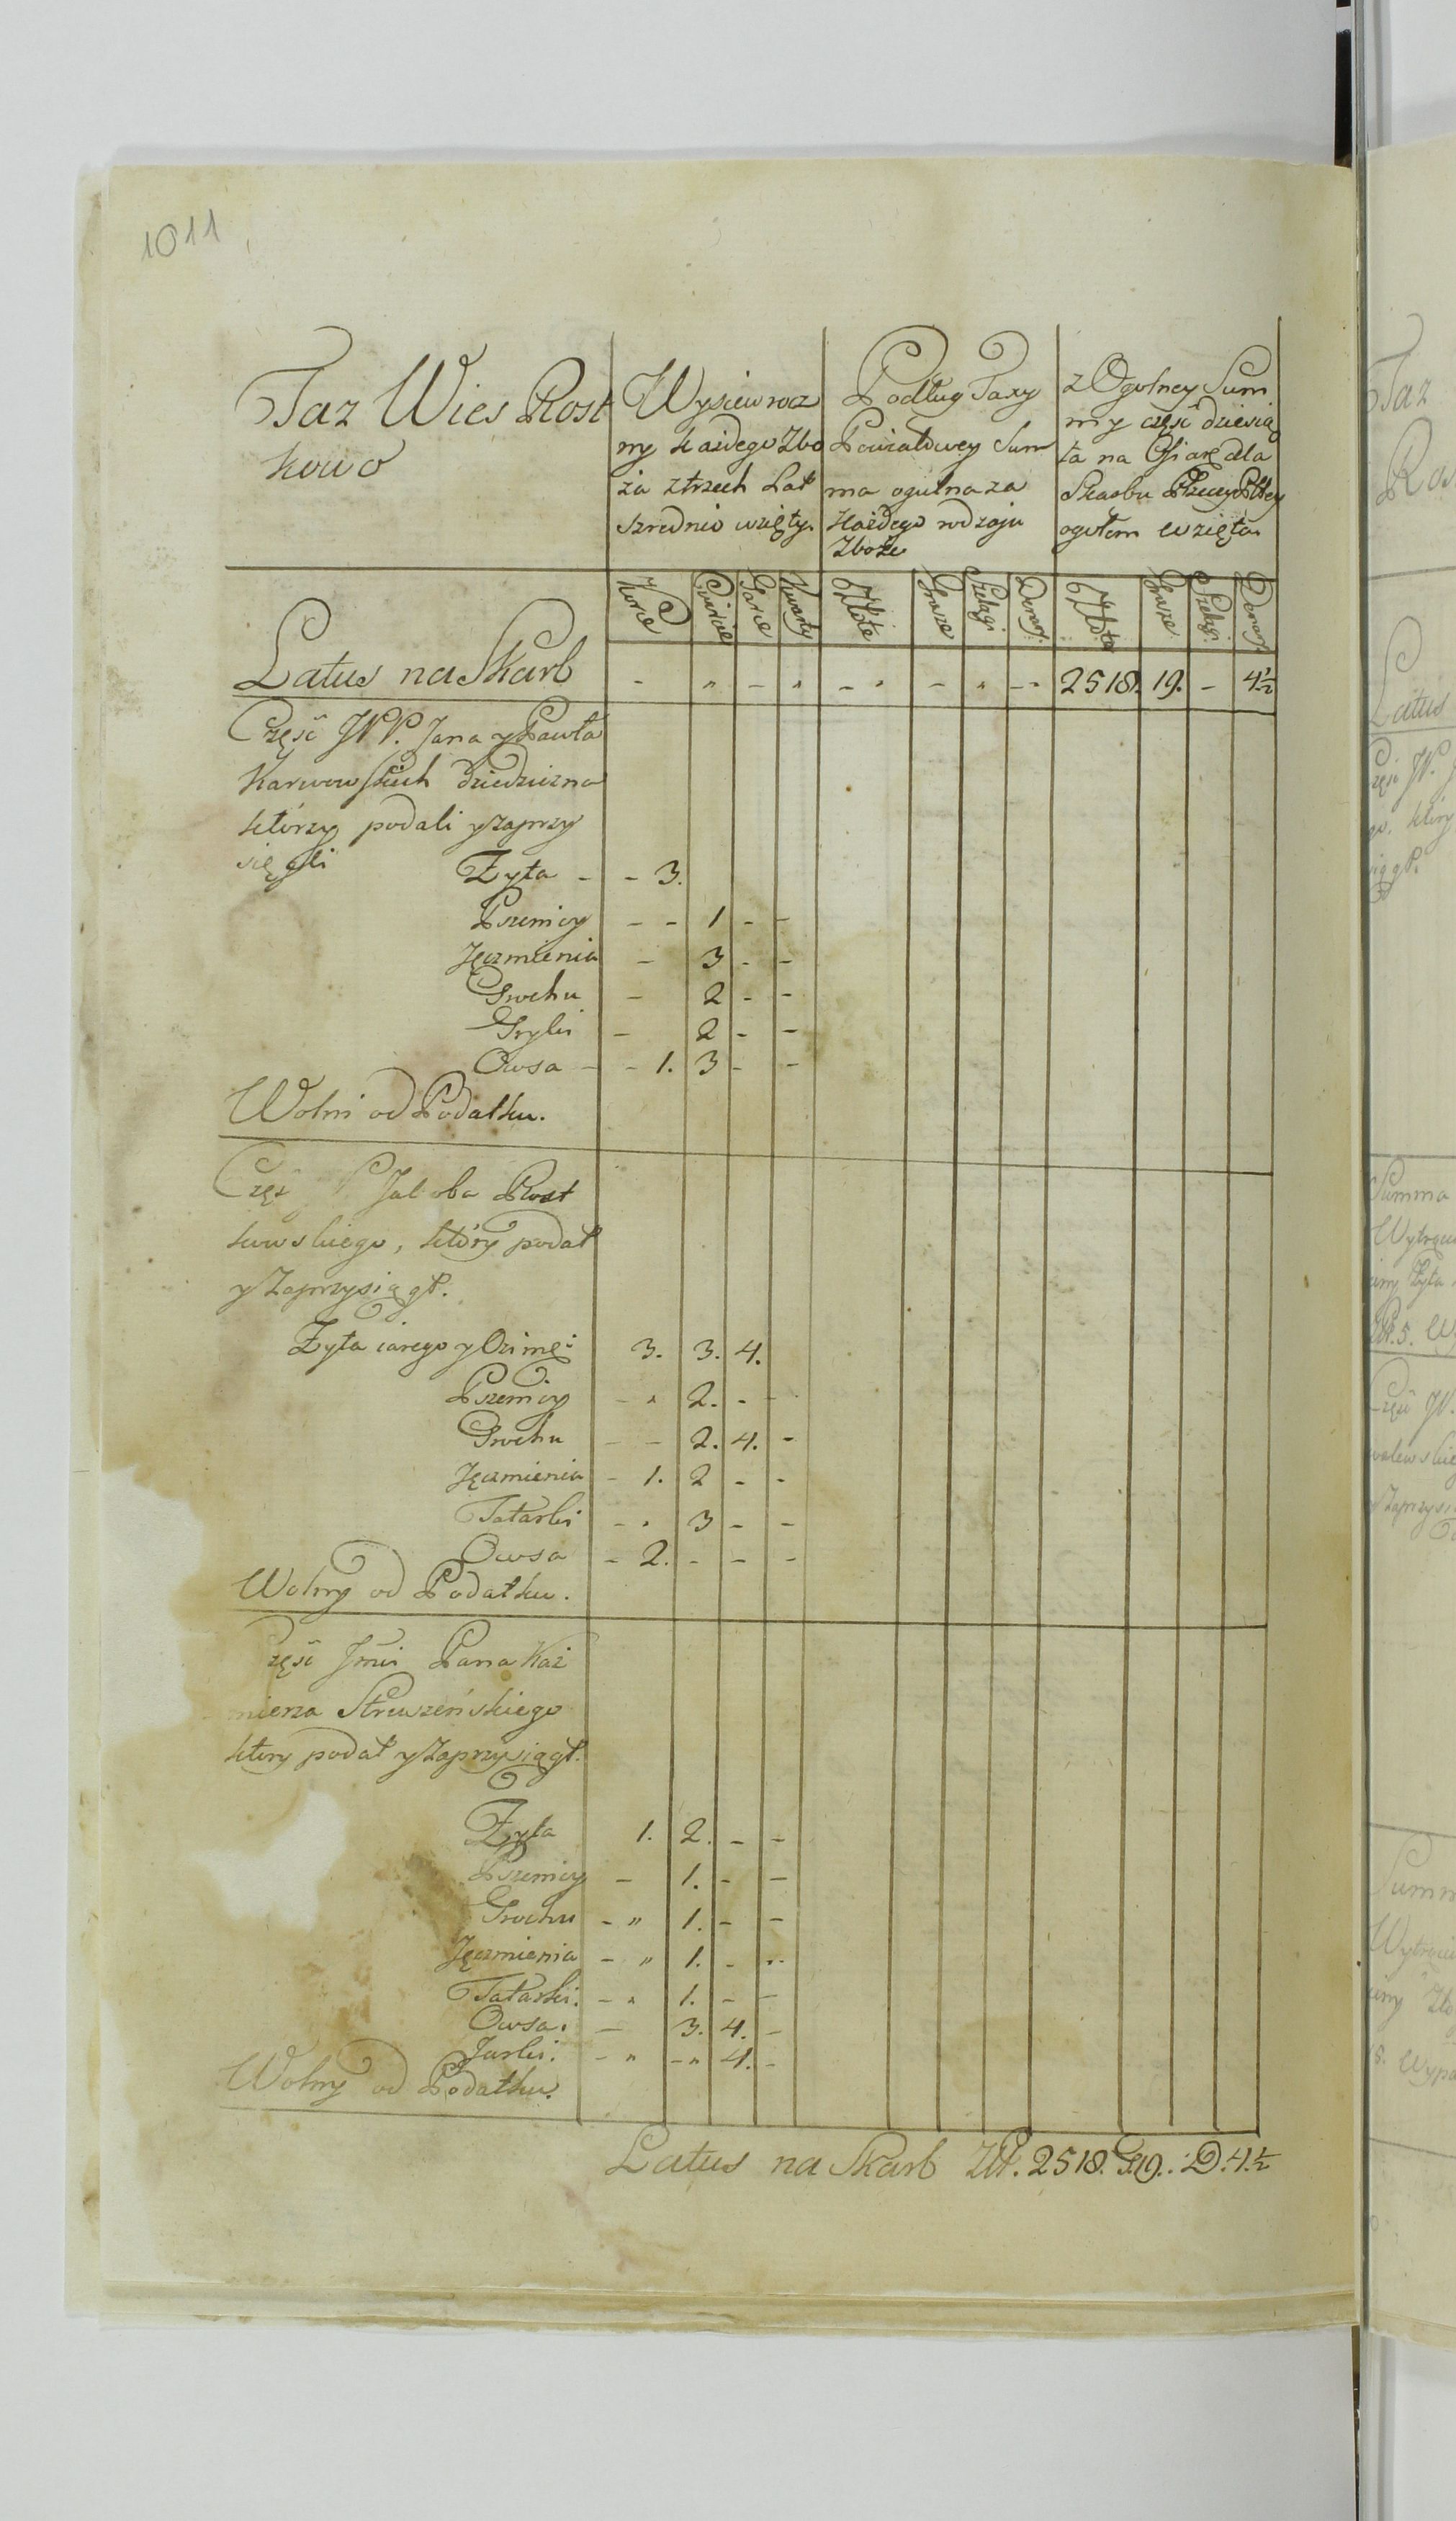 1011
Taz Wies Rost
kowo
Wysiew rocz
ny każdego zbo
ża z trzech Lat
szrednio wzięty.
Podług Taxy
Powiatowey Sum
ma ogulna za
każdego rodzaju
zboże
z Ogolney Sum
my częsć dziesią
ta na Ofiarę dla
Skarbu Rzeczy Pltey
ogołem wzięta
Korce Cwircie Garce Kwarty Złote Grosze Szelągi Denary Złote Grosze Szelągi Denary
Latus na Skarb - " - " - " - " - " 2518. 19. - 4½
Częsć JPP. Jana y Pawła
Karwowskich dziedziczna
którzy podali y zaprzy
sięgli
Zyta - - 3.
Pszenicy - - 1 - -
Jęczmienia - 3 - -
Grochu - 2 - -
Gryki - 2 - -
Owsa - - 1. 3 - -
Wolni od Podatku.
Częsć P Jakoba Rost
kowskiego, który podał
y zaprzysiągł.
Zyta iarego y Ozime: 3. 3. 4.
Pszenicy - " 2. - -
Grochu - - 2. 4. -
Jęczmienia - 1. 2 - -
Tatarki - " 3 - -
Owsa - 2. - - -
Wolny od Podatku.
zęsć Jmci Pana Kaź
mierza Struszeńskiego
ktory podał y zaprzysiągł.
Zyta 1. 2. - -
Pszenicy - 1. - -
Grochu - " 1. - -
Jęczmienia - " 1. - "
Tatarki. - " 1. - -
Owsa. - 3. 4. -
Jarki. - " - " 4. -
Wolny od Podatku.
Latus na Skarb Złł. 2518. G. 19. D. 4. ½
Taz
Ros
Latus
zęsć JP. J
go. ktory
siągł.
Summa
Wytrąci
iny Zyta
Zł. 5. W
Częsć JP.
walewskie
y zaprzysi
Summ
Wytrąci
iny Zło
8. Wypa